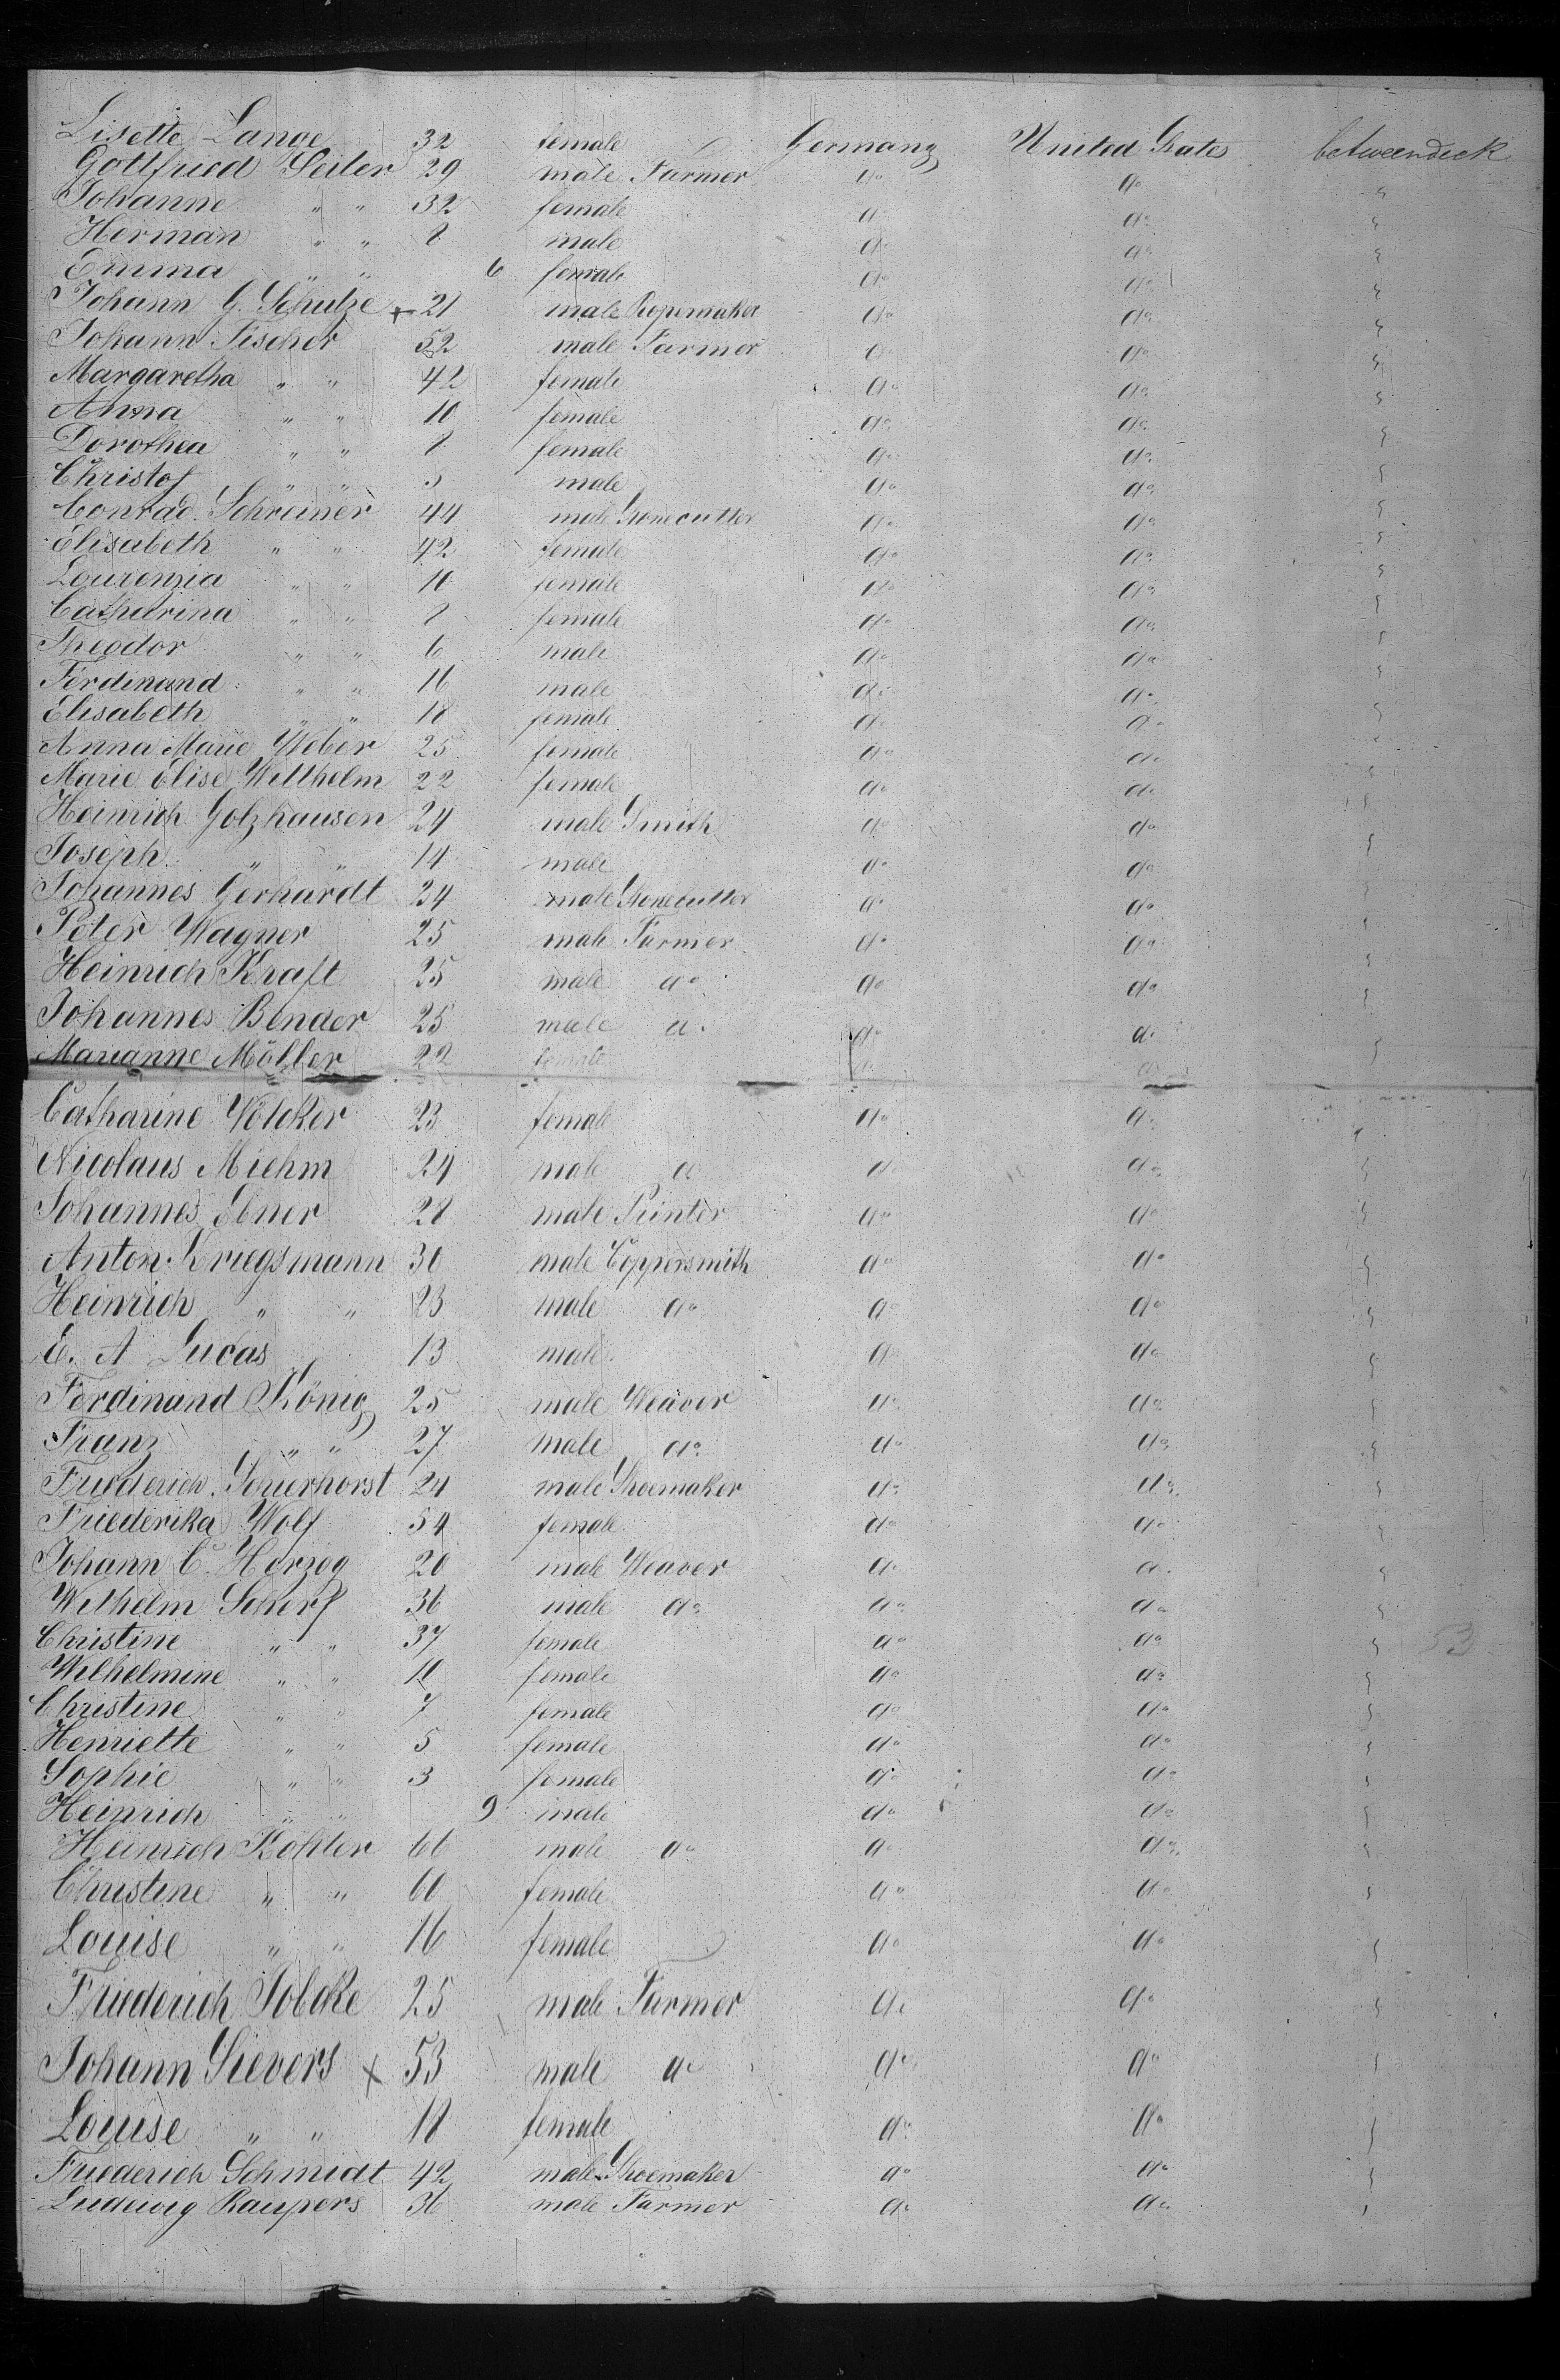 Lisette Lange 32 female Germany United States betweendeck
Gottfried Seiler 29 male Farmer do do "
Johanne " " 32 female do do "
Herman " " 8 male do do "
Emma " " 6 female do do "
Johann G. Schulze + 21 male Ropemaker do do "
Johann Fischer 52 male Farmer do do "
Margaretha " " 42 female do do "
Anna " " 10 female do do "
Dorothea " " 8 female do do "
Christof " " 3 male do do "
Conrad Schreiner 44 male Stonecutter do do "
Elisabeth " " 42 female do do "
Lourenzia " " 10 female do do "
Catharina " " 8 female do do "
Theodor " " 6 male do do "
Ferdinand " " 16 male do do "
Elisabeth " " 18 female do do "
Anna Marie Weber 25 female do do "
Marie Elise Willhelm 22 female do do "
Heinrich Golzhausen 24 male Smith do do "
Joseph " " 14 male do do "
Johannes Gerhardt 24 male Stonecutter do do "
Peter Wagner 25 male Farmer do do "
Heinrich Kraft 25 male do do do "
Johannes Bender 25 male do do do "
Marianne Möller 22 female do do
Catharine Völcker 23 female do do "
Nicolaus Miehm 24 male do do do "
Johannes Ebner 28 male Printer do do "
Anton Kriegsmann 30 male Coppersmith do do "
Heinrich " " 23 male do do do "
E. A Lucas 13 male do do "
Ferdinand König 25 male Weaver do do "
Franz " " 27 male do do do "
Friederich Scherhorst 24 male Shoemaker do do "
Friederika Wolf 54 female do do "
Johann C. Herzog 20 male Weaver do do "
Wilhelm Scherf 36 male do do do "
Christine " " 37 female do do " 53
Wilhelmine " " 10 female do do "
Christine " " 7 female do do "
Henriette " " 5 female do do "
Sophie " " 3 female do do "
Heinrich " " 9 male do do "
Heinrich Kohler 66 male do do do "
Christine " " 60 female do do "
Louise " " 16 female do do "
Friederich Jobcke 25 male Farmer do do "
Johann Sievers x 53 male do do do "
Louise " " 18 female do do "
Friederich Schmidt 42 male Shoemaker do do "
Ludewig Raupers 36 male Farmer do do "